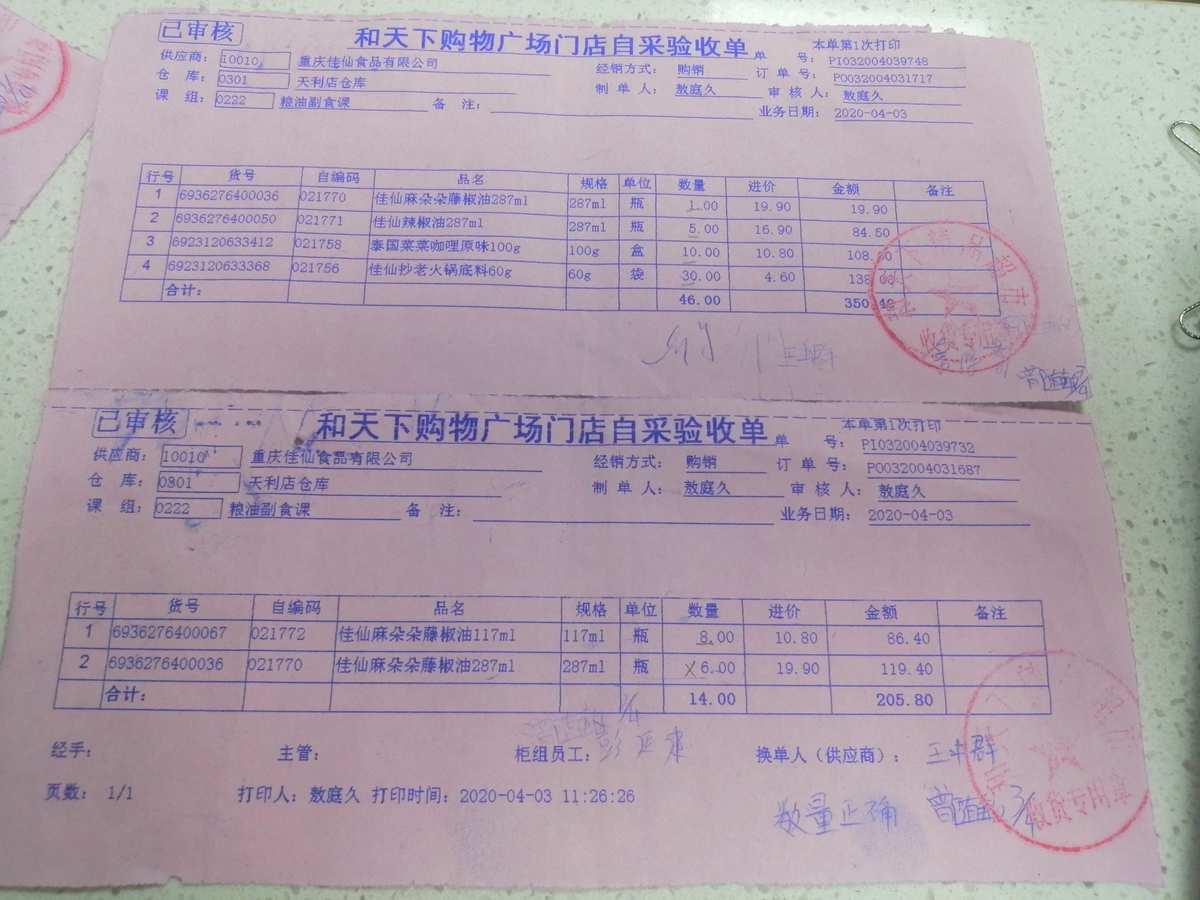 已审核 和天下购物广场门店自采验收单 本单第1次打印
单 号: PI032004039748
供应商: 10010 重庆佳仙食品有限公司 经销方式: 购销 订 单 号: PO032004031717
仓 库: 0301 天利店仓库 制 单 人: 敖庭久 审 核 人: 敖庭久
课 组: 0222 粮油副食课 备 注: 业务日期: 2020-04-03
行号 货号 自编码 品名 规格 单位 数量 进价 金额 备注
1 6936276400036 021770 佳仙麻朵朵藤椒油287ml 287ml 瓶 1.00 19.90 19.90
2 6936276400050 021771 佳仙辣椒油287ml 287ml 瓶 5.00 16.90 84.50
3 6923120633412 021758 泰国菜菜咖哩原味100g 100g 盒 10.00 10.80 108.00
4 6923120633368 021756 佳仙抄老火锅底料60g 60g 袋 30.00 4.60 138.00
合计: 46.00 350.40
收货专用
已审核 和天下购物广场门店自采验收单 本单第1次打印
单 号: PI032004039732
供应商: 10010 重庆佳仙食品有限公司 经销方式: 购销 订 单 号: PO032004031687
仓 库: 0301 天利店仓库 制 单 人: 敖庭久 审 核 人: 敖庭久
课 组: 0222 粮油副食课 备 注: 业务日期: 2020-04-03
行号 货号 自编码 品名 规格 单位 数量 进价 金额 备注
1 6936276400067 021772 佳仙麻朵朵藤椒油117ml 117ml 瓶 8.00 10.80 86.40
2 6936276400036 021770 佳仙麻朵朵藤椒油287ml 287ml 瓶 6.00 19.90 119.40
合计: 14.00 205.80
经手: 主管: 柜组员工: 换单人（供应商）:
页数: 1/1 打印人: 敖庭久 打印时间: 2020-04-03 11:26:26
数量正确 3/4
收货专用章